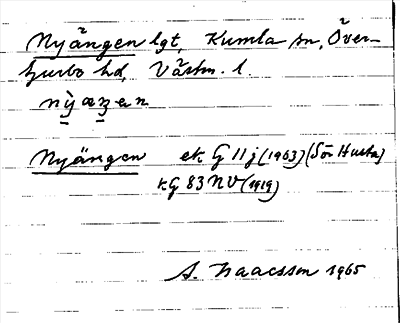 Nyängen lgt, Kumla sn, Över-
turbo hd, Västm. l
Nyängen ek G 11 j (1963) (Sör Husta)
kG 83 NV (1919)
A. Isaacsson 1965